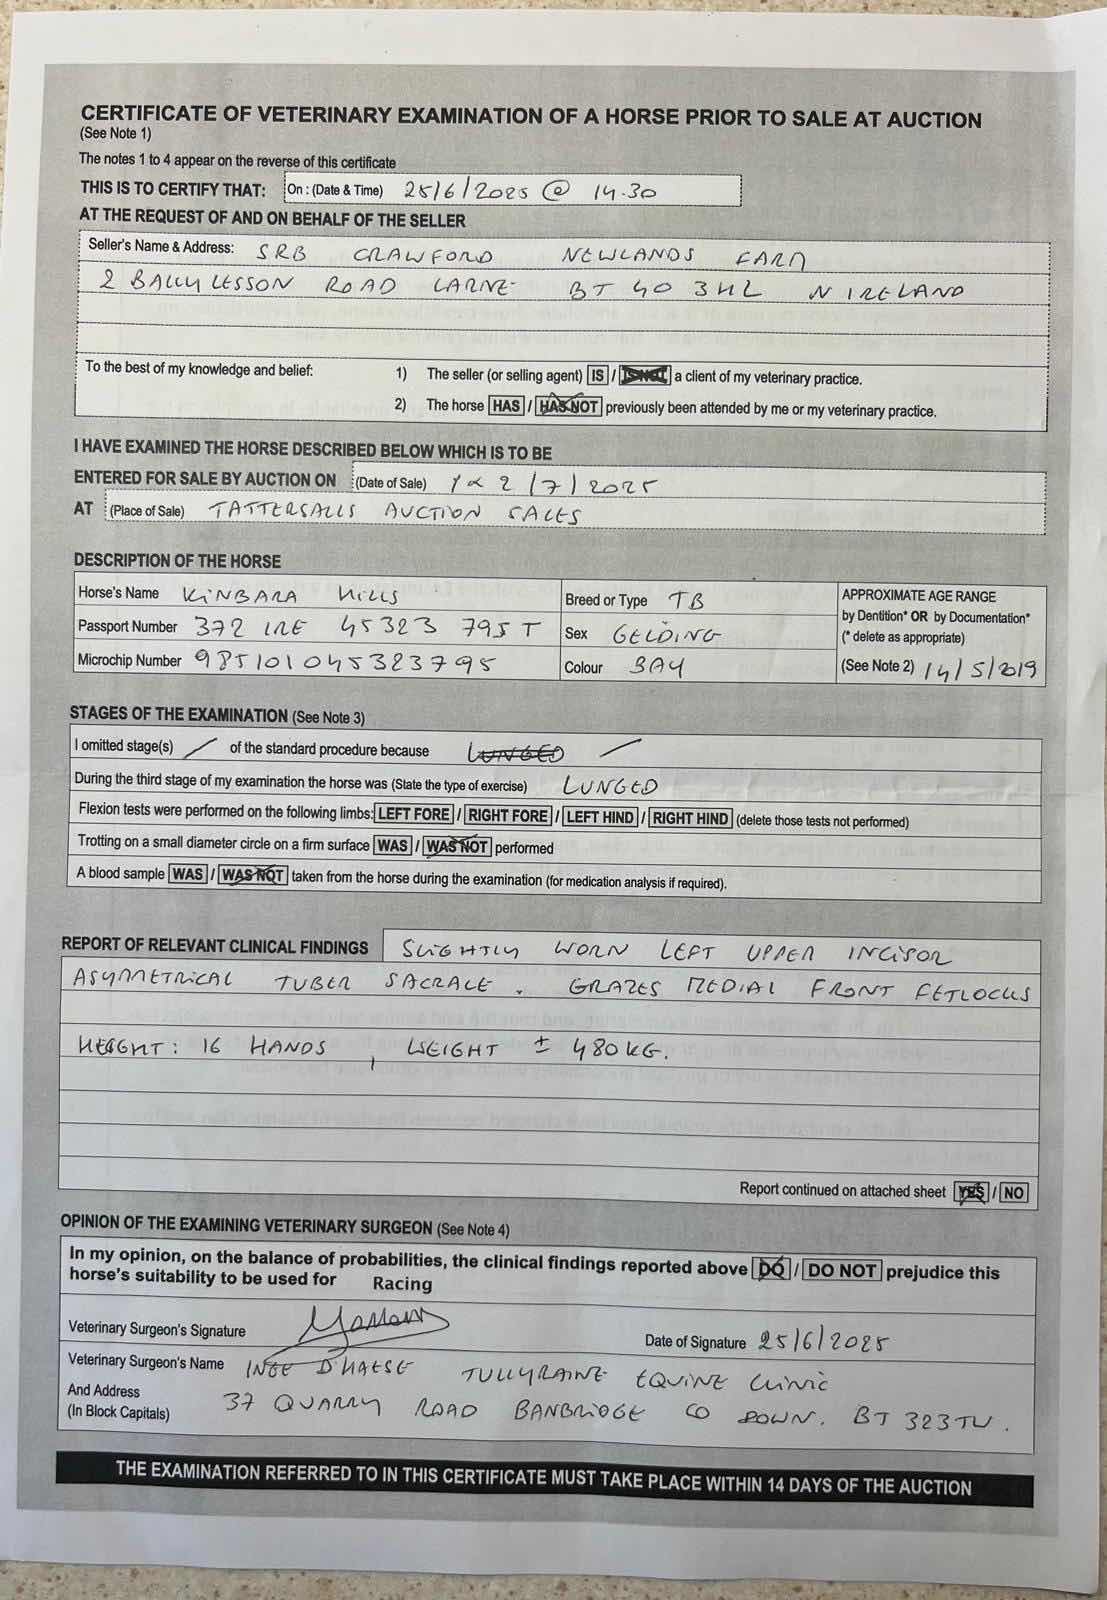 CERTIFICATE OF VETERINARY EXAMINATION OF A HORSE PRIOR TO SALE AT AUCTION
(See Note 1)
The notes 1 to 4 appear on the reverse of this certificate
THIS IS TO CERTIFY THAT: On : (Date & Time) 25/6/2025 @ 14.30
AT THE REQUEST OF AND ON BEHALF OF THE SELLER
Seller's Name & Address: SRB CRAWFORD NEWLANDS FARM
2 BALLYLESSON ROAD LARNE BT 40 3HL N IRELAND
To the best of my knowledge and belief: 1) The seller (or selling agent) IS / IS NOT a client of my veterinary practice.
2) The horse HAS / HAS NOT previously been attended by me or my veterinary practice.
I HAVE EXAMINED THE HORSE DESCRIBED BELOW WHICH IS TO BE
ENTERED FOR SALE BY AUCTION ON (Date of Sale) 1 & 2 /7/2025
AT (Place of Sale) TATTERSALLS AUCTION SALES
DESCRIPTION OF THE HORSE
Horse's Name KINBARA HILLS Breed or Type TB APPROXIMATE AGE RANGE
by Dentition* OR by Documentation*
Passport Number 372 IRE 45323 795 T Sex GELDING (* delete as appropriate)
Microchip Number 985101045323795 Colour BAY (See Note 2) 14/5/2019
STAGES OF THE EXAMINATION (See Note 3)
I omitted stage(s) / of the standard procedure because LUNGED /
During the third stage of my examination the horse was (State the type of exercise) LUNGED
Flexion tests were performed on the following limbs: LEFT FORE / RIGHT FORE / LEFT HIND / RIGHT HIND (delete those tests not performed)
Trotting on a small diameter circle on a firm surface WAS / WAS NOT performed
A blood sample WAS / WAS NOT taken from the horse during the examination (for medication analysis if required).
REPORT OF RELEVANT CLINICAL FINDINGS SLIGHTLY WORN LEFT UPPER INCISOR
ASYMMETRICAL TUBER SACRALE . GRAZES MEDIAL FRONT FETLOCKS
HEIGHT: 16 HANDS , WEIGHT ± 480KG.
Report continued on attached sheet YES / NO
OPINION OF THE EXAMINING VETERINARY SURGEON (See Note 4)
In my opinion, on the balance of probabilities, the clinical findings reported above DO / DO NOT prejudice this
horse's suitability to be used for Racing
Veterinary Surgeon's Signature Date of Signature 25/6/2025
Veterinary Surgeon's Name INGE D'HAESE TULLYRAINE EQUINE CLINIC
And Address
(In Block Capitals) 37 QUARRY ROAD BANBRIDGE CO DOWN. BT 323TW .
THE EXAMINATION REFERRED TO IN THIS CERTIFICATE MUST TAKE PLACE WITHIN 14 DAYS OF THE AUCTION